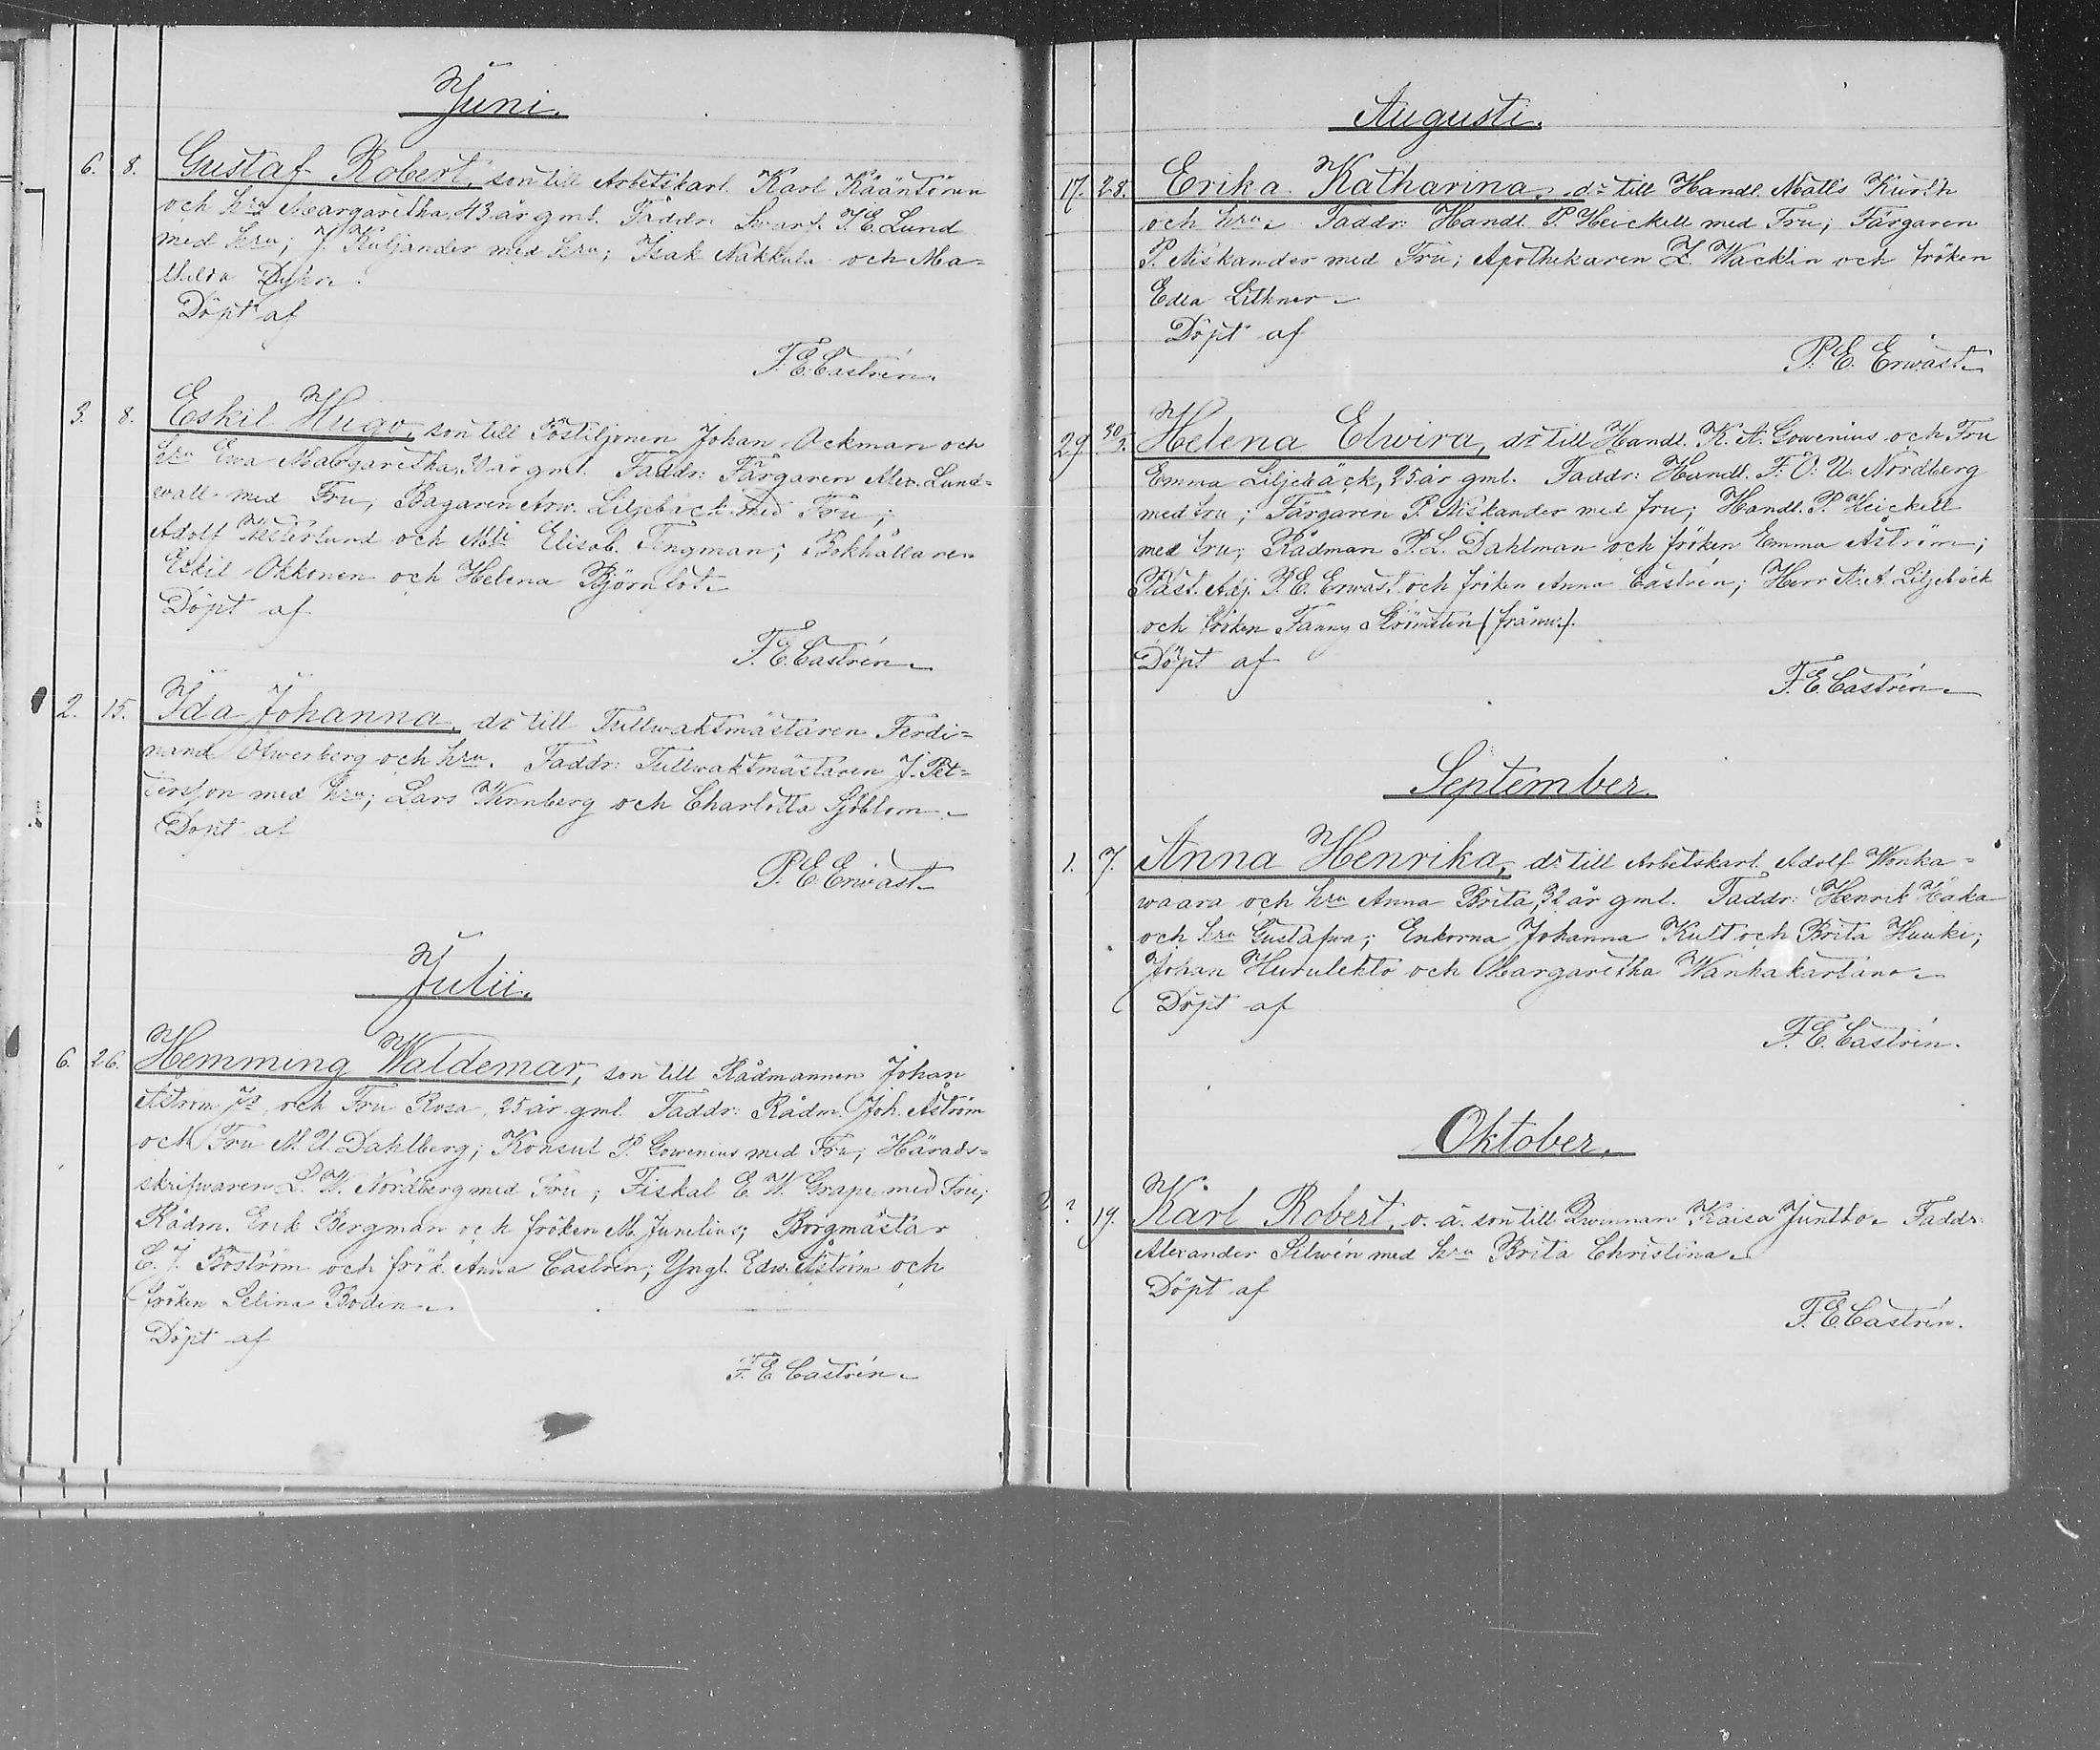 Juni.
6. 8. Gustaf Robert, son till Arbetskarl Karl Kääntönen
och hru Margaretha, 43 år gml. Faddr: Svarf. J. E. Lund
med hru; J. Kuljander med hru; Isak Nakkula och Ma-
thilda
Döpt af
F. E. Castrén.
3. 8. Eskil Hugo, son till Postiljonen Johan Ockman och
hru Ewa Margaretha, år gml. Faddr: Färgaren Alex. Lund-
wall med Fru; Bagaren Arw. Liljebäck med Fru;
Adolf Westerlund och Mlle Elisab. Tengman; Bokhållaren
Eskil Okkonen och Helena Björnfot.
Döpt af
F. E. Castrén.
2. 15. Ida Johanna, dr till Tullwaktmästaren Ferdi-
nand Olwerberg och hru. Faddr: Tullwaktmästaren J. Pet-
tersson med hru; Lars Wennberg och Charlotta Sjöblom.
Döpt af
P. E. Erwast.
Julii.
6. 26. Hemming Waldemar, son till Rådmannen Johan
Åström Jr och Fru Rosa, 25 år gml. Faddr: Rådm. Joh. Åström
och Fru M. U. Dahlberg; Konsul P. Gowenius med Fru; Härads-
skrifwaren L. W. Nordberg med Fru; Fiskal E. W. Grape med Fru;
Rådm. Erik Bergman och fröken M. Junelius; Borgmästar
C. J. Boström och frök. Anna Castrén; Yngl. Edw. Åström och
fröken Selina Bodin.
Döpt af
F. E. Castrén.
Augusti.
17. 28. Erika Katharina, dr till Handl. Matts Kurth
och hru. Faddr: Handl. P. Heickell med Fru; Färgaren
P. Niskander med Fru; Apothekaren Z. Wacklin och fröken
Edla Lithner.
Döpt af
P. E. Erwast.
29. 30/3. Helena Elwira, dr till Handl. K. A. Gowenius och Fru
Emma Liljebäck, 25 år gml. Faddr: Handl. F. O. U. Nordberg
med fru; Färgaren P. Niskander med fru; Handl. P. Heickell
med fru; Rådman P. L. Dahlman och fröken Emma Åström;
Past. Adj. P. E. Erwast och fröken Anna Castrén; Herr A. A. Liljebäck
och fröken Fanny
Döpt af
F. E. Castrén.
September.
1. 7. Anna Henrika, dr till Arbetskarl Adolf Wonka-
waara och hru Anna Brita, 32 år gml. Faddr: Henrik Kaka
och hru Gustafwa; Enkorna Johanna Kult och Brita Hauki;
Johan Hurulehto och Margaretha Wanhakartano.
Döpt af
F. E. Castrén.
Oktober.
? 19. Karl Robert, o. ä. son till Qwinnan Kaisa Juntto. Faddr:
Alexander Silwén med hru Brita Christina.
Döpt af
F. E. Castrén.